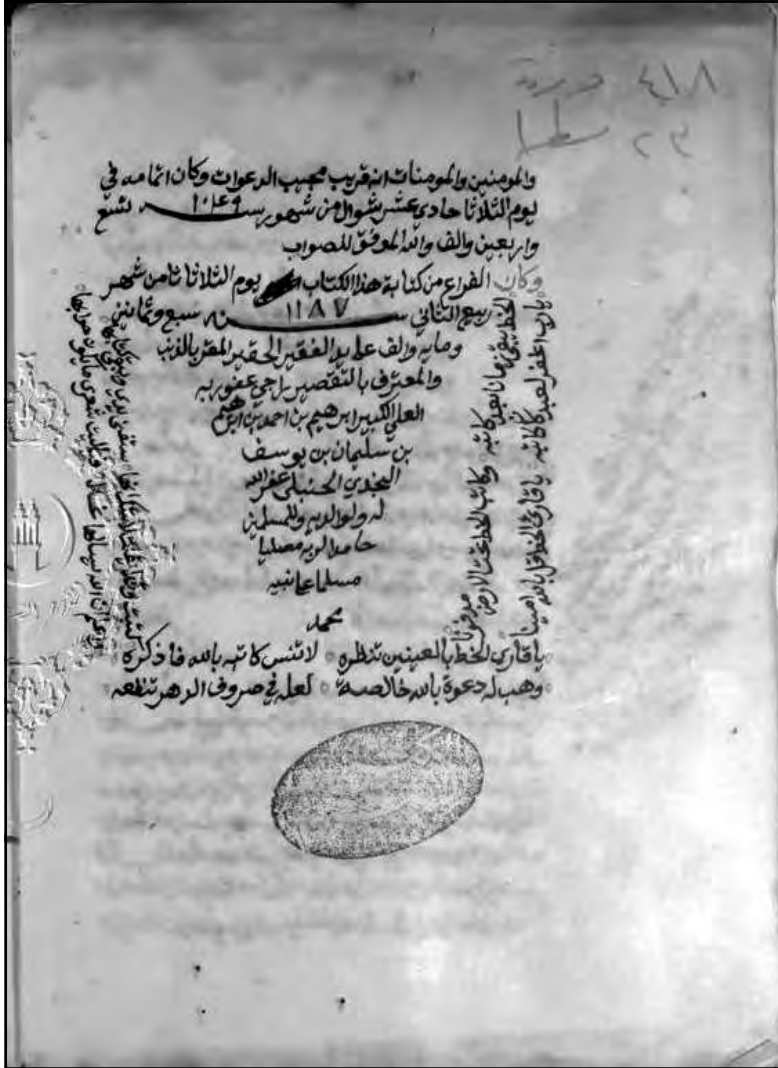 ٤١٨ ورقة
٢٣ سطرا
والمومنين والمومنات انه قريب مجيب الدعوات وكان اتمامه في
يوم الثلاثا حادي عشر شوال من شهور سنه ١٠٤٩ تسع
واربعين والف والله الموفق للصواب
وكان الفراغ من كتابة هذا الكتاب يوم الثلاثا ثامن شهر
ربيع الثاني سنه ١١٨٧ سبع وثمانين
ومايه والف على يد الفقير الحقير المقر بالذنب
والمعترف بالتقصير راجي عفو ربه
العلي الكبير ابرهيم بن احمد بن ابرهيم
بن سليمان بن يوسف
النجدي الحنبلي غفر الله
له ولوالديه وللمسلمين
حامدا لربه مصليا
مسلما على نبيه
محمد
يا قاري الخط بالعينين تنظره لا تنس كاتبه بالله فاذكره
وهب له دعوة بالله خالصة لعله في صروف الدهر تنفعه
الخط يبقى زمانا بعد كاتبه وكاتب الخط تحت الارض مدفونا
يا رب اغفر لعبد كان كاتبه يا قاري الخط قل بالله امينا
كتبت وقد ايقنت